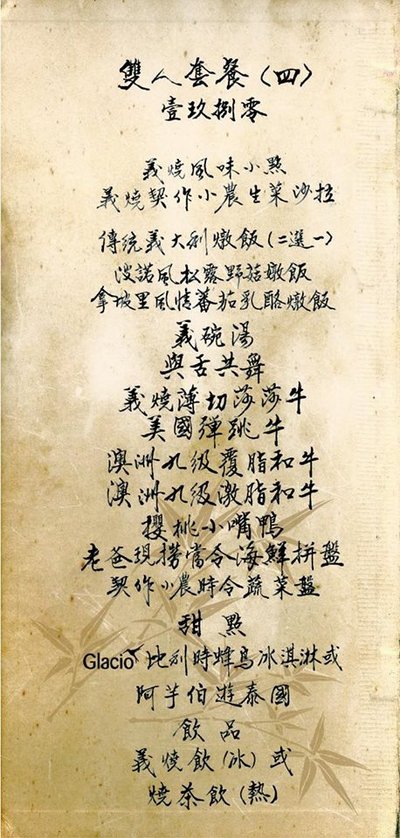 雙人套餐(四)
壹玖捌零
義燒風味小點
義燒契作小農生菜沙拉
傳統義大利燉飯(二選一)
波諾風松露野菇燉飯
拿坡里風情蕃茄乳酪燉飯
義碗湯
與舌共舞
義燒薄切莎莎牛
美國彈跳牛
澳洲九級覆脂和牛
澳洲九級激脂和牛
櫻桃小嘴鴨
老爸現撈當令海鮮拼盤
契作小農時令蔬菜盤
甜點
Glacio 比利時蜂鳥冰淇淋或
阿芋伯遊泰國
飲品
義燒飲(冰)或
燒茶飲(熱)